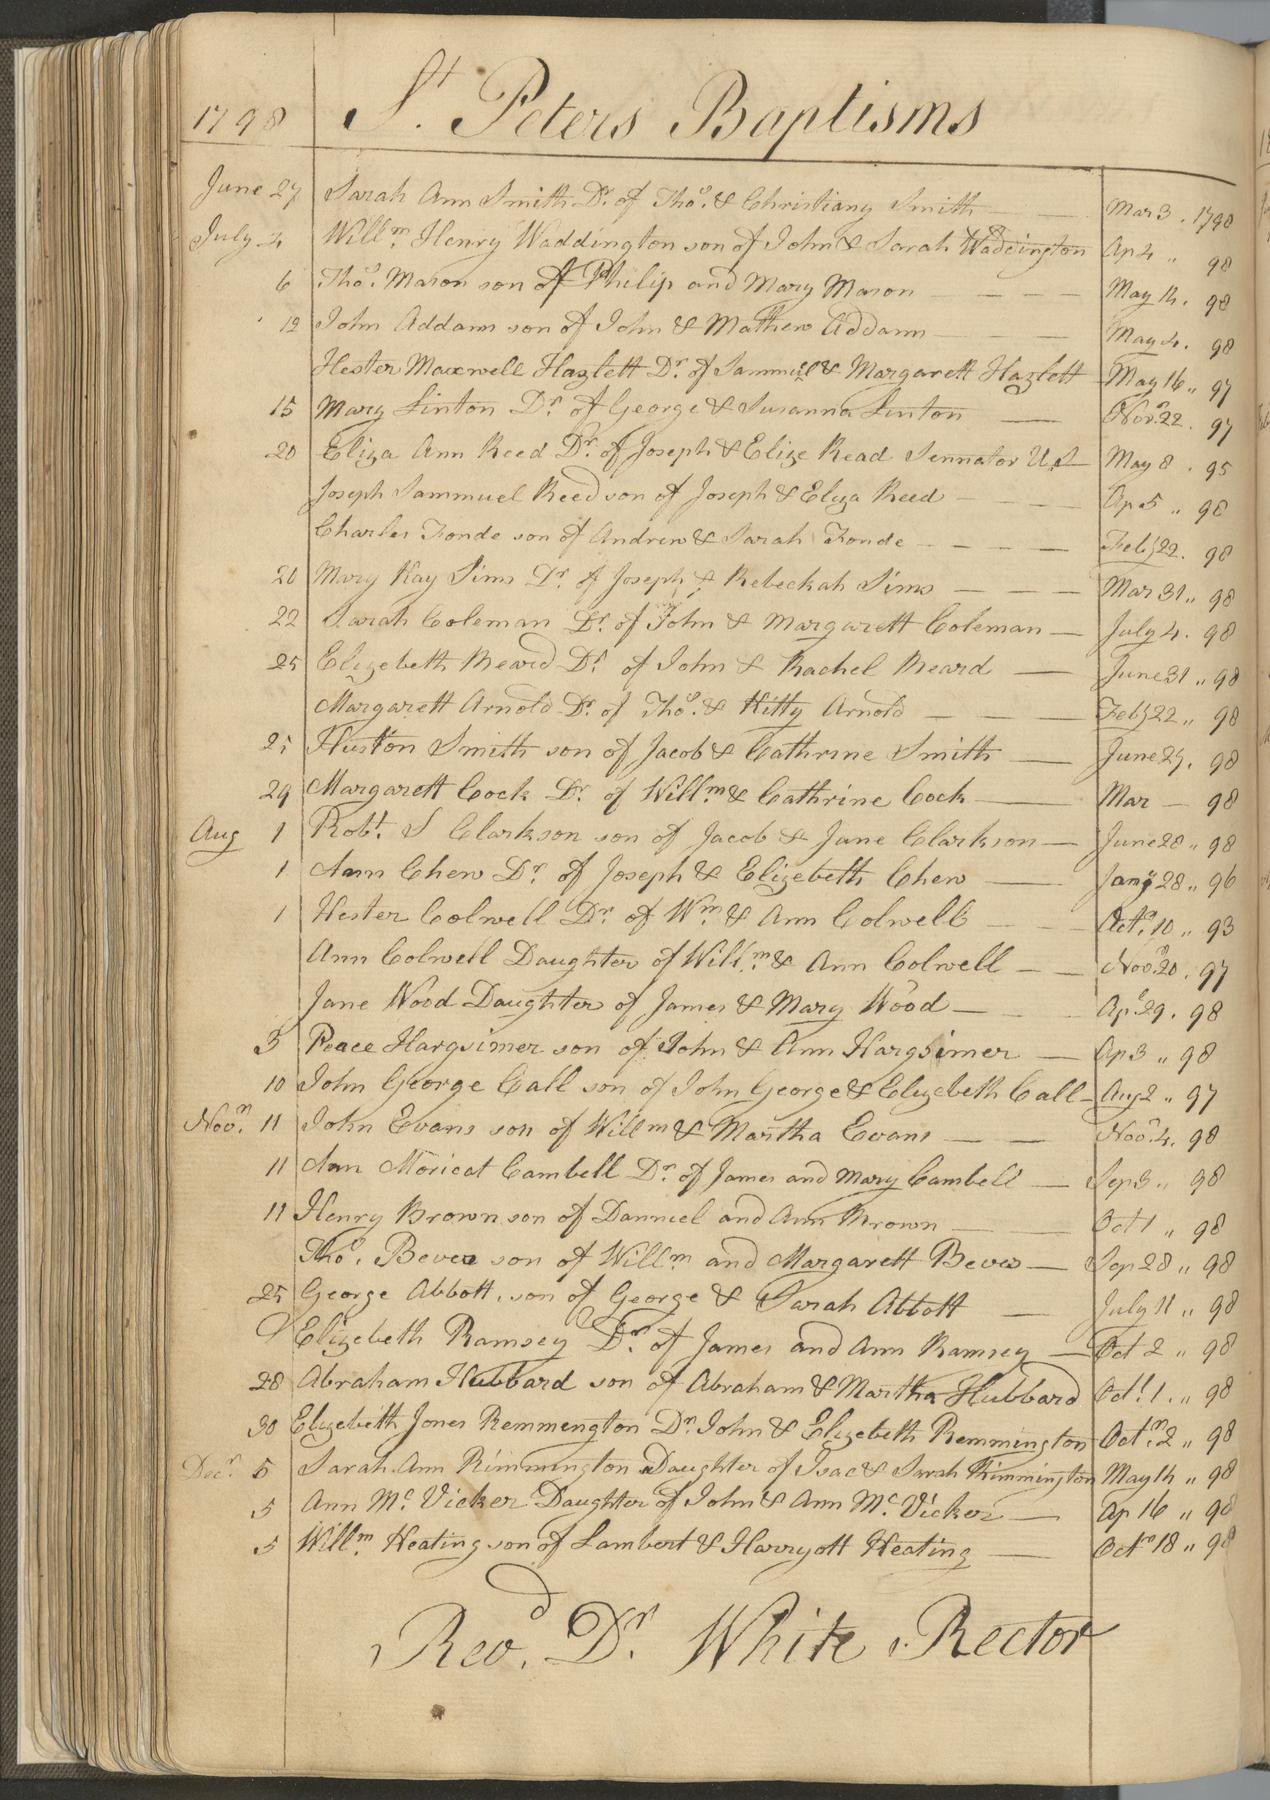 1798 St. Peters Baptisms
June 27 Sarah Ann Smith Dr. of Thos. & Christiany Smith Mar 3. 1798
July 4 Willm. Henry Waddington son of John & Sarah Waddington Ap 4 " 98
6 Thos. Mason son of Philip and Mary Mason May 14. 98
12 John Addams son of John & Mathew Addams May 4. 98
Hester Maxwell Hazlett Dr. of Sammuel & Margarett Hazlett May 16 " 97
15 Mary Linton Dr. of George & Susanna Linton Novr. 22. 97
20 Eliza Ann Reed Dr. of Joseph & Elize Read Sennator U.S May 8. 95
Joseph Sammuel Reed son of Joseph & Eliza Reed Ap 5 " 98
Charles Fonde son of Andrew & Sarah Fonde Feby 22. 98
20 Mary Kay Sims Dr. of Joseph & Rebeckah Sims Mar 31 " 98
22 Sarah Coleman Dr. of John & Margarett Coleman July 4. 98
25 Elizebeth Beard Dr. of John & Rachel Beard June 31 " 98
Margarett Arnold Dr. of Thos. & Kitty Arnold Feby 22 " 98
25 Huston Smith son of Jacob & Cathrine Smith June 27. 98
29 Margarett Cock Dr. of Willm. & Cathrine Cock Mar — 98
Aug 1 Robt. S Clarkson son of Jacob & Jane Clarkson June 28 " 98
1 Ann Chew Dr. of Joseph & Elizebeth Chew Jany 28 " 96
1 Hester Colwell Dr. of Wm. & Ann Colwell Octr. 10 " 93
Ann Colwell Daughter of Willm. & Ann Colwell Novr. 20. 97
Jane Wood Daughter of James & Mary Wood Apl 29. 98
3 Peace Hargsimer son of John & Ann Hargsimer Ap 3 " 98
10 John George Call son of John George & Elizebeth Call Aug 2 " 97
Novm. 11 John Evans son of Willm & Martha Evans Novr. 4. 98
11 Ann Moricat Cambell Dr. of James and Mary Cambell Sep 3 " 98
11 Henry Brown son of Danniel and Ann Brown Oct 1 " 98
Thos. Beves son of Willm and Margarett Beves Sep 28 " 98
25 George Abbott, son of George & Sarah Abbott July 11 " 98
Elizebeth Ramsey Dr. of James and Ann Ramsey Oct 2 " 98
28 Abraham Hubbard son of Abraham & Martha Hubbard Oct. 1. " 98
30 Elizebeth Jones Remmengton Dr. John & Elizebeth Remmington Octr. 2 " 98
Decr. 5 Sarah Ann Rimmington Daughter of Isac & Sarah Rimmington May 14 " 98
5 Ann Mc. Vicker Daughter of John & Ann Mc. Vicker Ap 16 " 98
5 Willm. Keating son of Lambert & Harryott Keating Octr 18 " 98
Revd. Dr. White. Rector